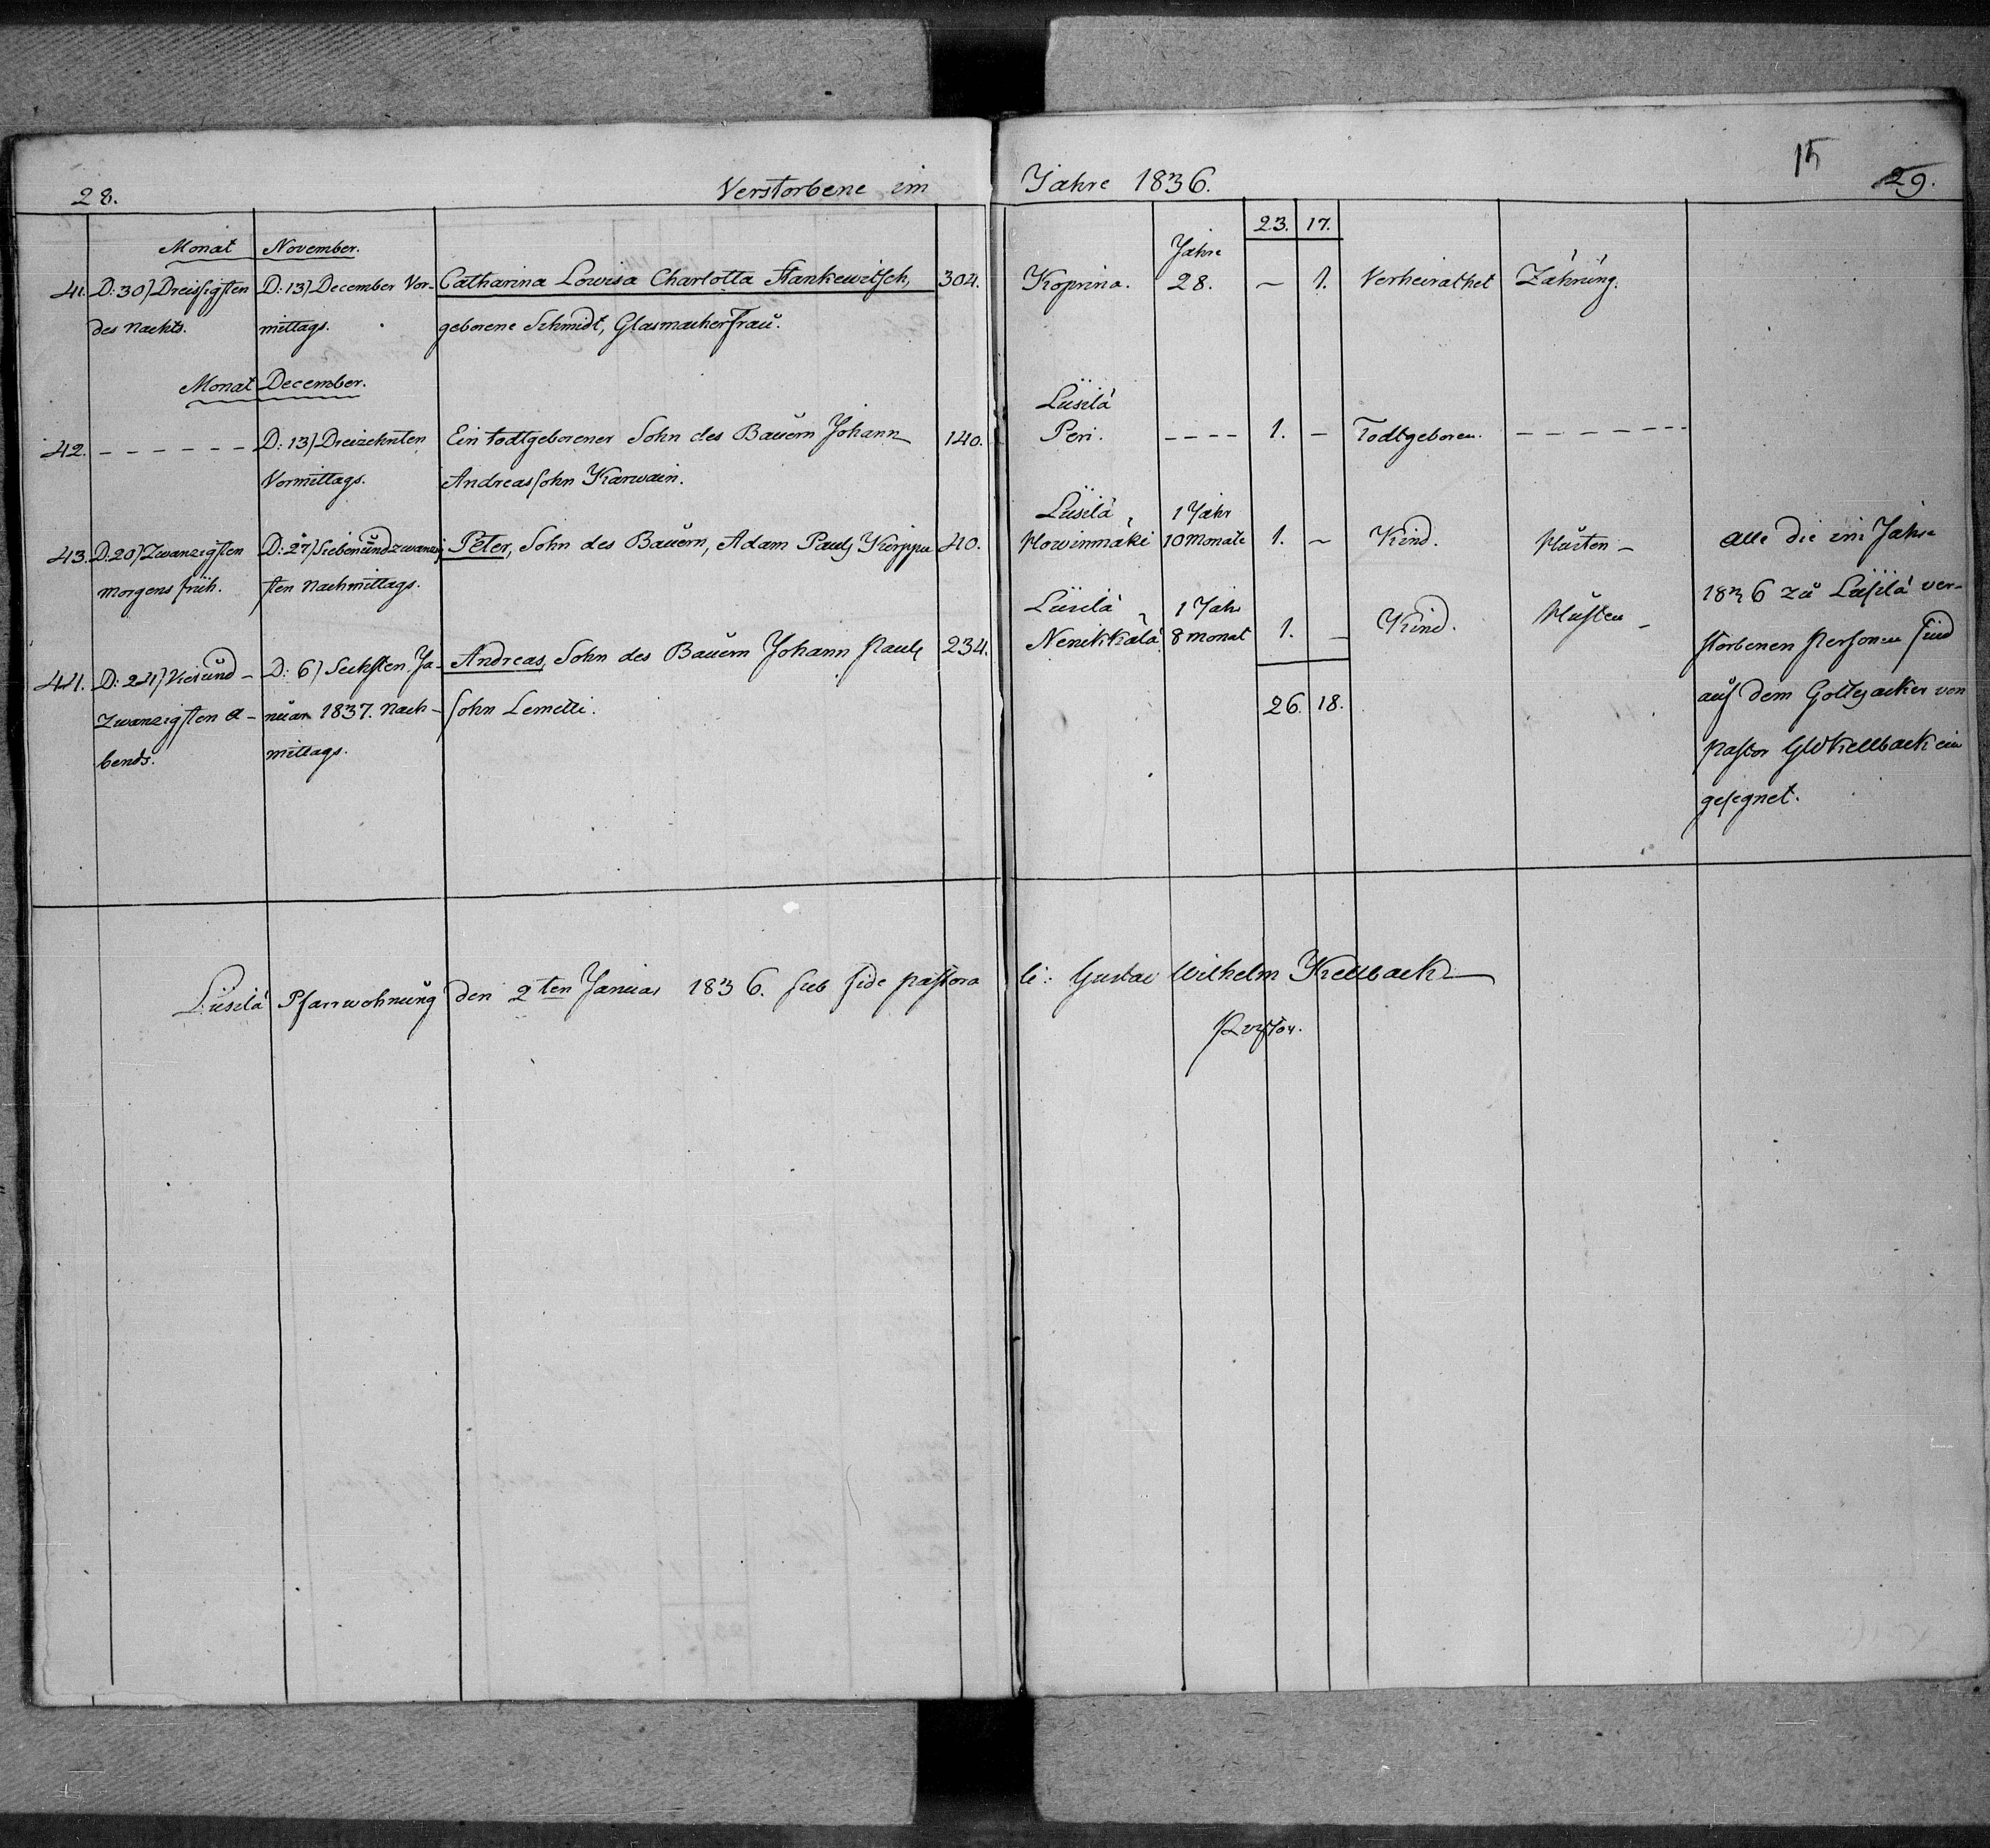 28.
Verstorbene im
Jahre 1836.
15
29.
23. 17.
Monat November.
Jahre
41. D: 30) Dreissigsten D: 13) December Vor- Catharina Lowisa Charlotta Stankewitsch, 304. Koprina. 28. – 1. Verheirathet Zährung.
des Nachts. mittags. geborene Schmidt, Glasmacherfrau.
Monat December.
Liisilä
42. – – – – – – D: 13) Dreizehnten Ein todtgeborener Sohn des Bauern Johann 140. Peri. – – – – 1. – Todtgeboren. – – – – – –
Vormittags. Andreas sohn Karwain.
Liisilä, 1 Jahr
43. D. 20) Zwanzigsten D: 27) Siebenundzwanzig Peter, Sohn des Bauern, Adam Pauls Kirppu 40. Howinmäki 10 Monate 1. – Kind. Husten – Alle die im Jahre
morgens früh. sten Nachmittags.
1836 zu Liisilä ver-
Liisilä, 1 Jahr
44. D: 24) Vierund- D: 6) Sechsten Ja- Andreas, Sohn des Bauern Johann Pauls 234. Nenikkälä 8 Monat 1. – Kind. Husten – storbenen Personen sind
zwanzigsten A- nuar 1837. Nach- sohn Lemetti. 26. 18. auf dem Gottesacker von
bends. mittags. Pastor GW Kellback ein
gesegnet.
Liisilä Pfarrwohnung den 2ten Januar 1836. Sub fide pastora li: Gustav Wilhelm Kellback
Pastor.